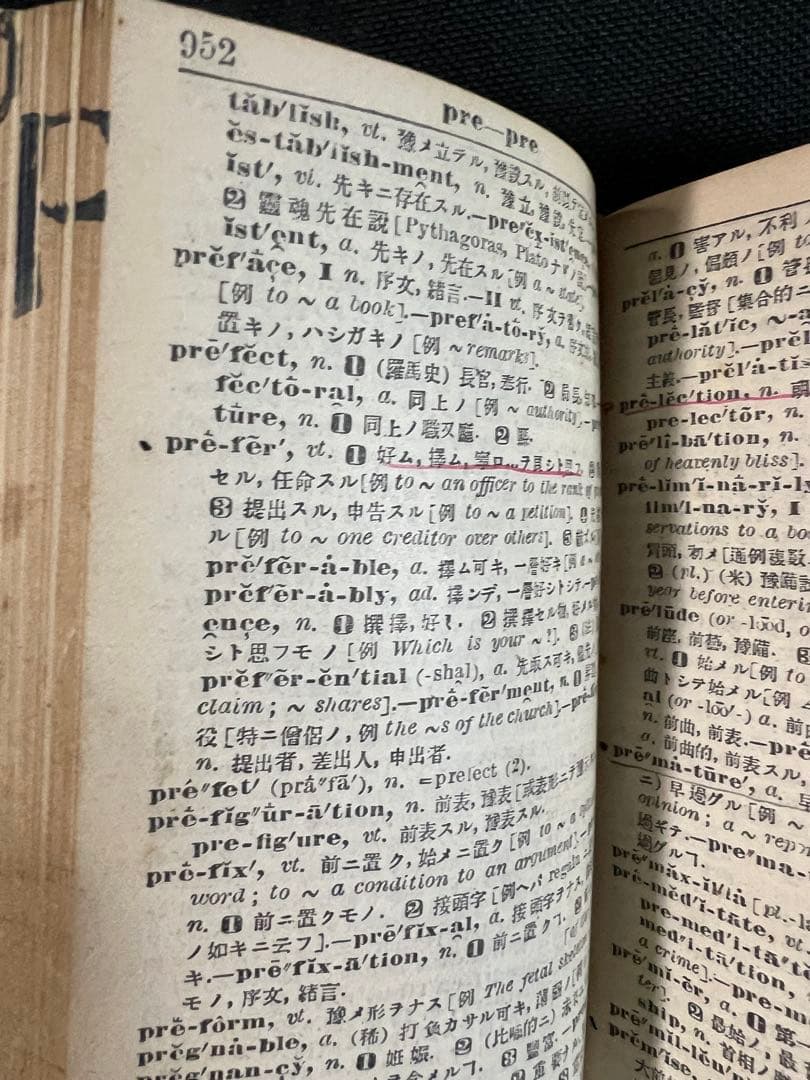 952
pre—pre
tăb′lĭsh, vt. 豫メ立テル, 豫設スル,
ĕs-tăb′lĭsh-mẹnt, n. 豫立, 豫設,
ĭst′, vi. 先キニ存在スル.—pre″ĕx-ist′ẹnce,
❷ 靈魂先在說 [Pythagoras, Plato ナドノ
ĭst′ẹnt, a. 先キノ, 先在スル [例 a ~ state].
prĕf′ȧçe, I n. 序文, 緖言.—II vt. 序文ヲ書ク,
[例 to ~ a book].—pref′ȧ-tô-rў, a.
置キノ, ハシガキノ [例 ~ remarks].
prē′fĕct, n. ❶ (羅馬史) 長官, 奉行. ❷
fĕc′tô-ral, a. 同上ノ [例 ~ authority].—
tûre, n. ❶ 同上ノ職又廳. ❷
prê-fẽr′, vt. ❶ 好ム, 擇ム, 寧ロ…ヲ良シト思フ.
セル, 任命スル [例 to ~ an officer to the rank of
❸ 提出スル, 申吿スル [例 to ~ a petition].
ル [例 to ~ one creditor over others].
prĕf′ẽr-ȧ-ble, a. 擇ム可キ, 一層好キ [例
prĕf′ẽr-ȧ-bly, ad. 擇ンデ, 一層好シトシテ.—
ẹnçe, n. ❶ 撰擇, 好ミ. ❷ 撰擇セル物,
シト思フモノ [例 Which is your ~?]. ❸
prĕf″ẽr-ĕn′tial (-shal), a. 先取ス可キ,
claim; ~ shares].—prê-fẽr′mẹnt, n. ❶
役 [特ニ僧侶ノ, 例 the ~s of the church].—
n. 提出者, 差出人, 申出者.
pré″fet′ (prâ″fā′), n. =prefect (2).
prê-fĭg″ûr-ā′tion, n. 前表, 豫表 [或表形ニテ
pre-fig′ure, vt. 前表スル, 豫表スル.
prê-fĭx′, vt. 前ニ置ク, 始メニ置ク [例 to ~ a
word; to ~ a condition to an argument].—
n. ❶ 前ニ置クモノ. ❷ 接頭字 [例ヘバ regain
ノ如キニ云フ].—prē′fĭx-al, a. 接頭字ヲナス,
キ.—prē″fĭx-ā′tion, n. ❶ 前ニ置クヿ.
モノ, 序文, 緖言.
prê-fôrm, vt. 豫メ形ヲナス [例 The fetal
prĕg′nȧ-ble, a. (稀) 打負カサル可キ,
prĕg′nan-çў, n. ❶ 姙娠. ❷ (比喩的ニ)
a. ❶ 害アル, 不利
偏見ノ, 偏頗ノ [例 to
prĕl′ȧ-çў, n. ❶
管長, 監督 [集合的ニ
prê-lăt′ĭc, ~-a
authority].—prĕl
主義.—prĕl′ȧ-tĭs
prê-lĕc′tion, n.
pre-lec′tõr, n.
prē″lî-bā′tion, n.
of heavenly bliss].
prê-lĭm′ĭ-nâ-rĭ-ly
lim′i-na-rў, I
servations to a bo
冒頭, 初メ [通例複數.
❷ (pl.) (米) 豫備試
year before enterin
prē′lūde (or -lo͞od, o
前座, 前藝, 豫備.
vt. ❶ 始メル [例 to
曲トシテ始メル [例
al (or -lo͞o′-) a. 前
n. 前曲, 前表.—prê
a. 前曲的, 前表スル,
prē″mȧ-tūre′, a.
ニ) 早過グル [例 ~
opinion; a ~ repo
過ギテ.—pre″ma-
過グルヿ.
prē″măx-ĭl′lȧ [pl. -l
prê-mĕd′ĭ-tāte, vt
pre-med-i-ta
med″i-ta′tion,
a crime].
prē′mĭ-ẽr, a. ❶ 第一
ter]. ❷ 最始ノ, 最
ship, n. 首相ノ
prē″mĭl-lĕn′
prĕm′ise,
大前